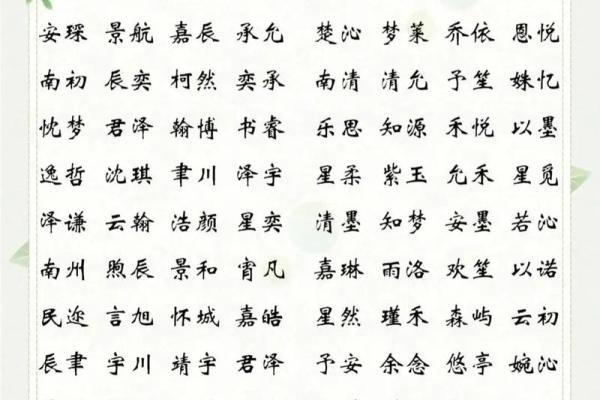 安琛 景航 嘉辰 承允 楚沁 梦莱 乔依 恩悦
南初 辰奕 柯然 奕承 南清 清允 予笙 姝忆
忱梦 君泽 翰博 书睿 乐思 知源 禾悦 以墨
逸哲 沈琪 聿川 泽宇 星柔 紫玉 允禾 星觅
泽谦 云翰 浩颜 星奕 清墨 知梦 安墨 若沁
南州 煦辰 景和 宵凡 嘉琳 雨洛 欢笙 以诺
民迩 言旭 怀城 嘉皓 星然 瑾禾 森屿 云初
辰聿 宇川 靖宇 君泽 予安 余念 悠亭 婉沁